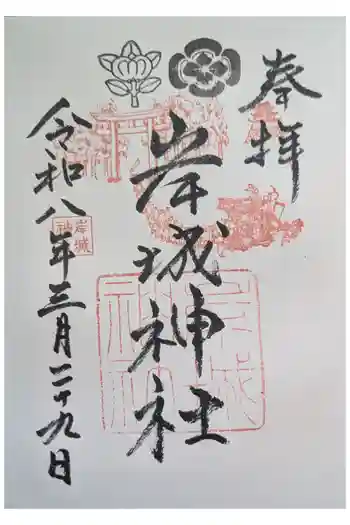 奉拝
岸城神社
令和八年三月二十九日
岸城
神社